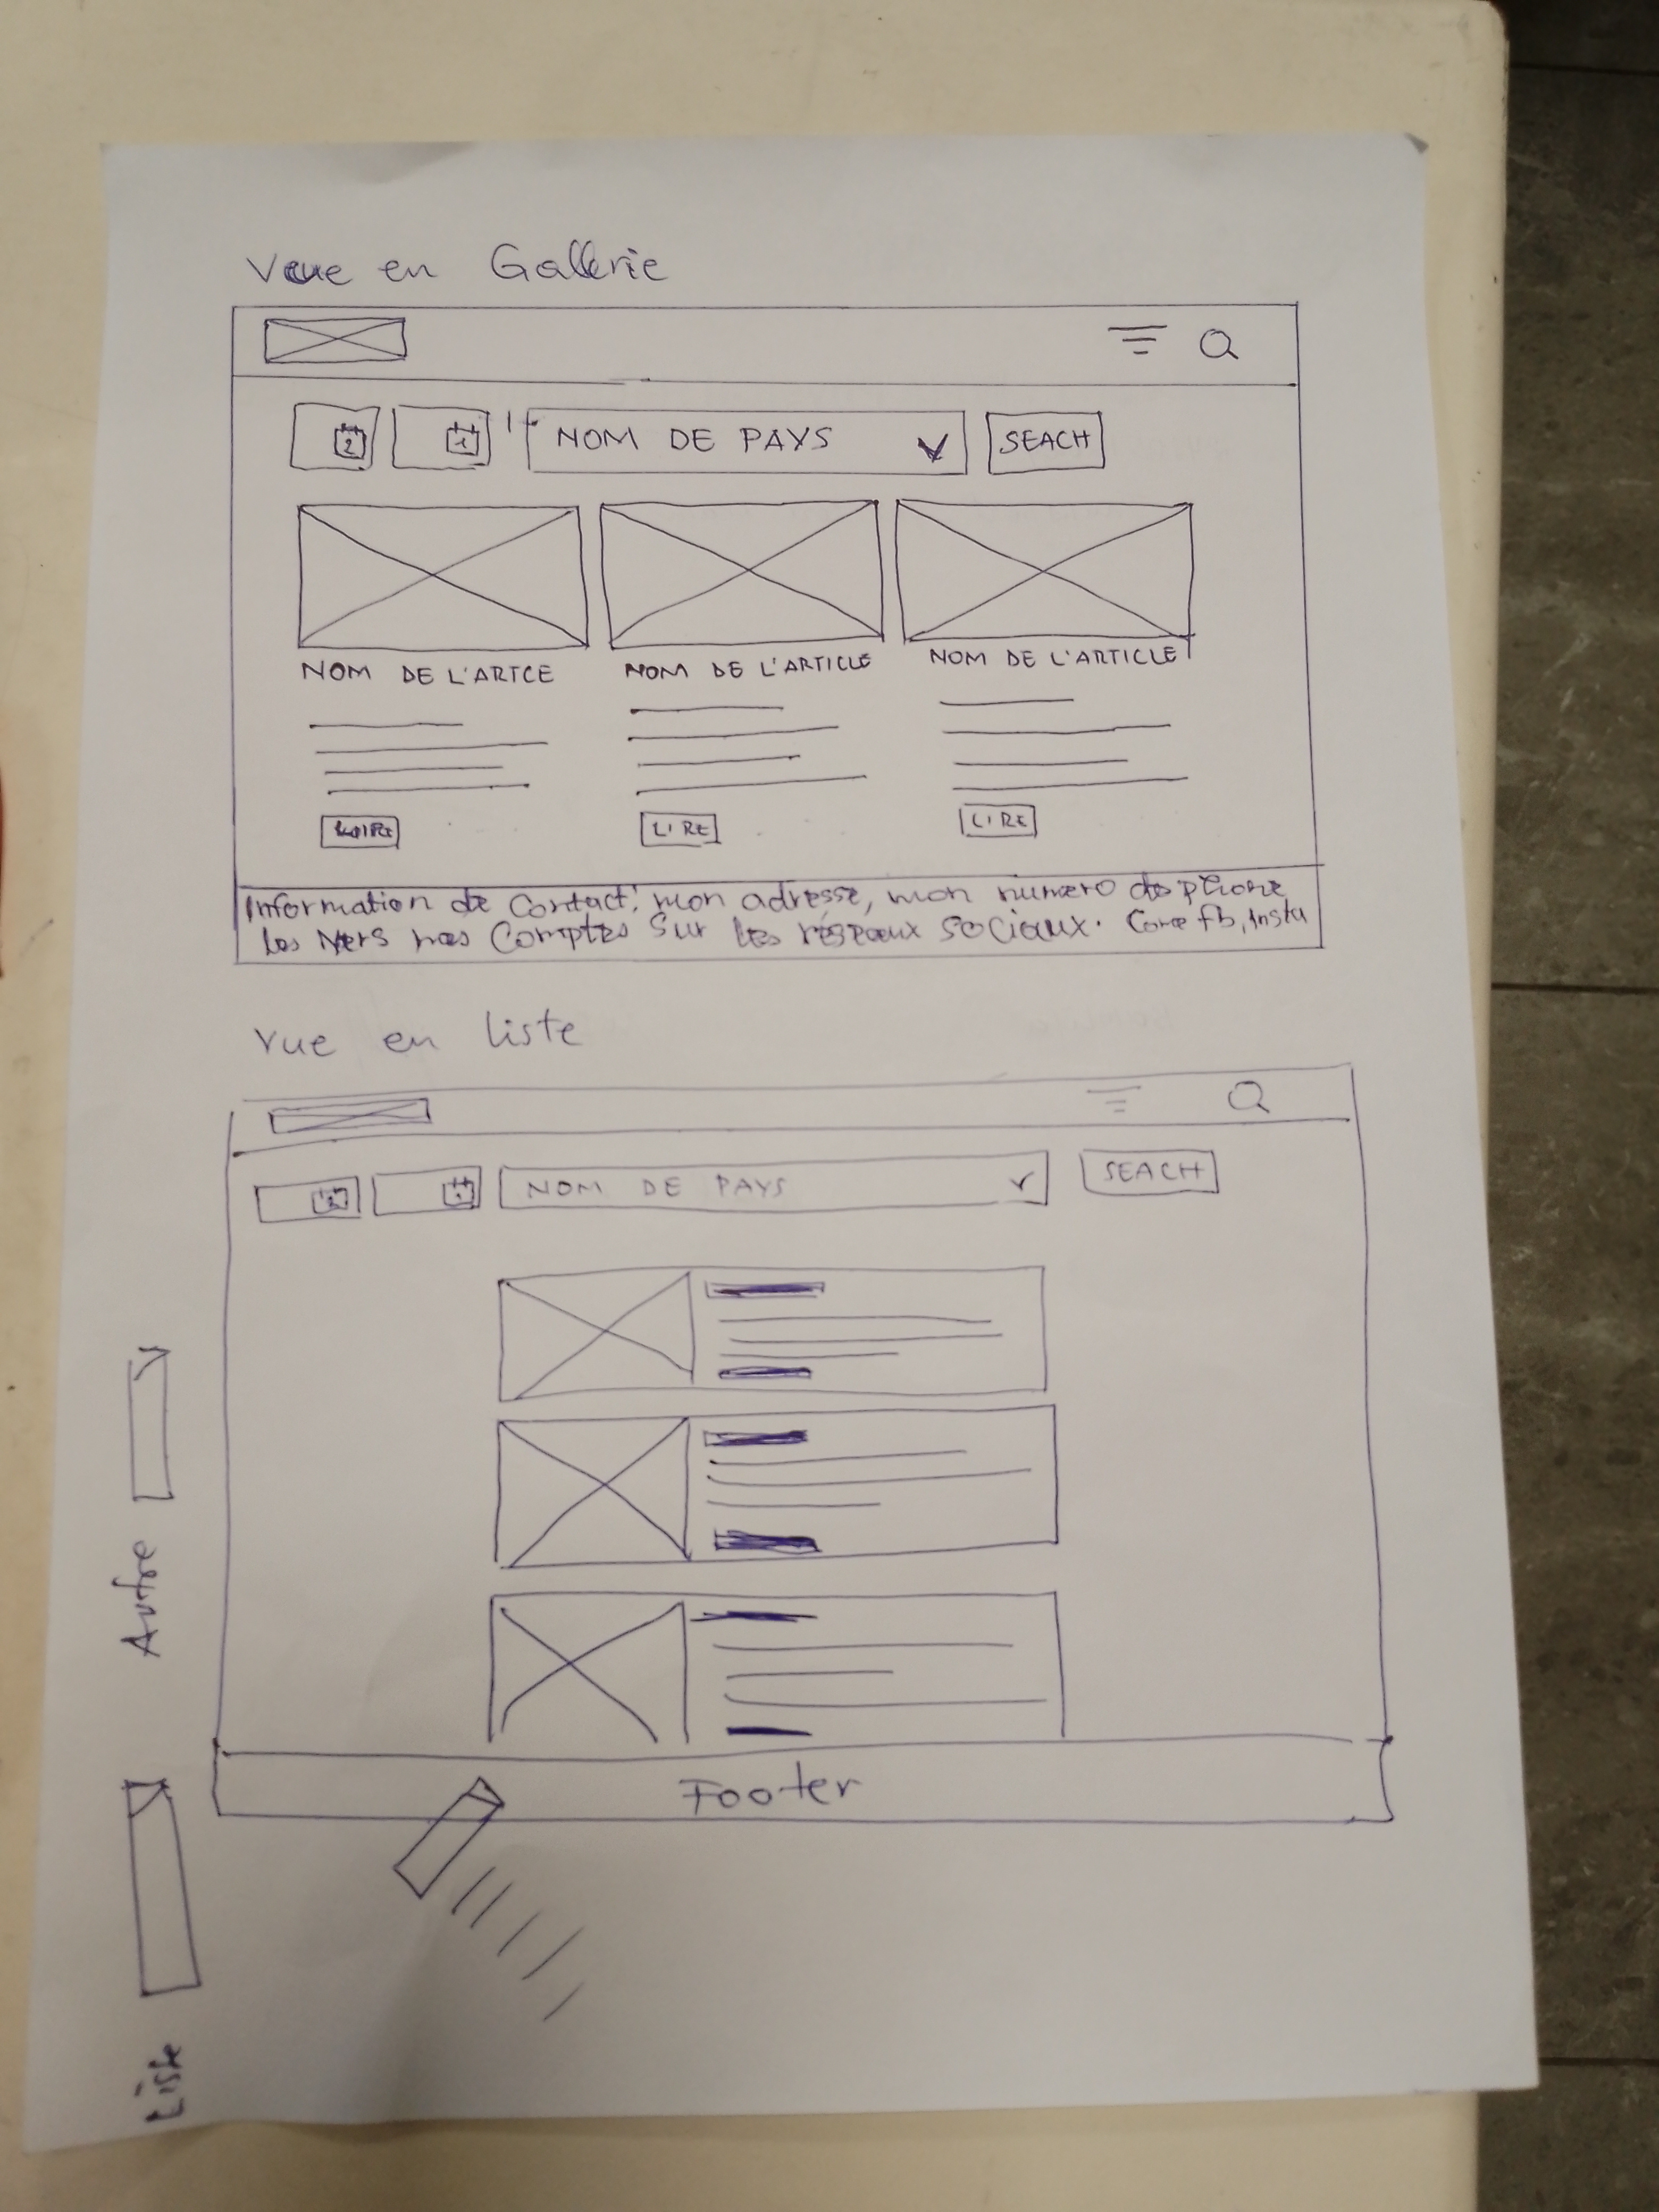 Vue en Gallerie
2 1 NOM DE PAYS SEACH
NOM DE L'ARTCE NOM DE L'ARTICLE NOM DE L'ARTICLE
LIRE LIRE
Information de Contact: mon adresse, mon numero de phone
les sur les réseaux sociaux. Come fb, insta
Vue en liste
NOM DE PAYS SEACH
Footer
Autre
Liste